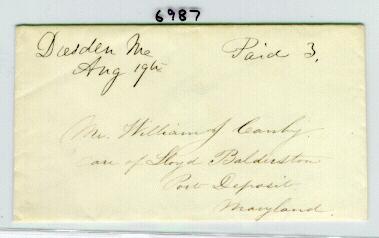 6987
Dresden Me
Aug 19th
Paid 3.
Mr. William J Canby
Care of Lloyd Balderston
Port Deposit
Maryland.